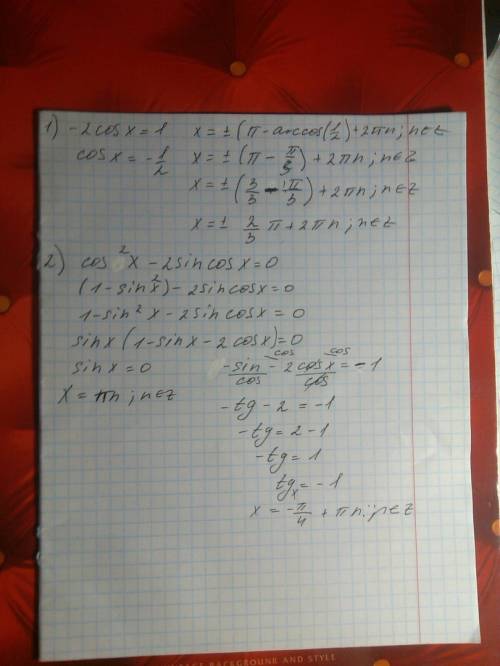 1) -2cosx=1 x=±(π-arccos(1/2)+2πn;n∈z
cosx=-1/2 x=±(π-π/3)+2πn;n∈z
x=±(3/3-1π/3)+2πn;n∈z
x=± 2/3 π+2πn;n∈z
2) cos²x-2sincosx=0
(1-sin²x)-2sincosx=0
1-sin²x-2sincosx=0
sinx(1-sinx-2cosx)=0
sinx=0 -sin/cos - 2cosx/cos=-1
x=πn;n∈z -tg-2=-1
-tg=2-1
-tg=1
tgx=-1
x=-π/4+πn;n∈z
BACKGROUND AND STYLE